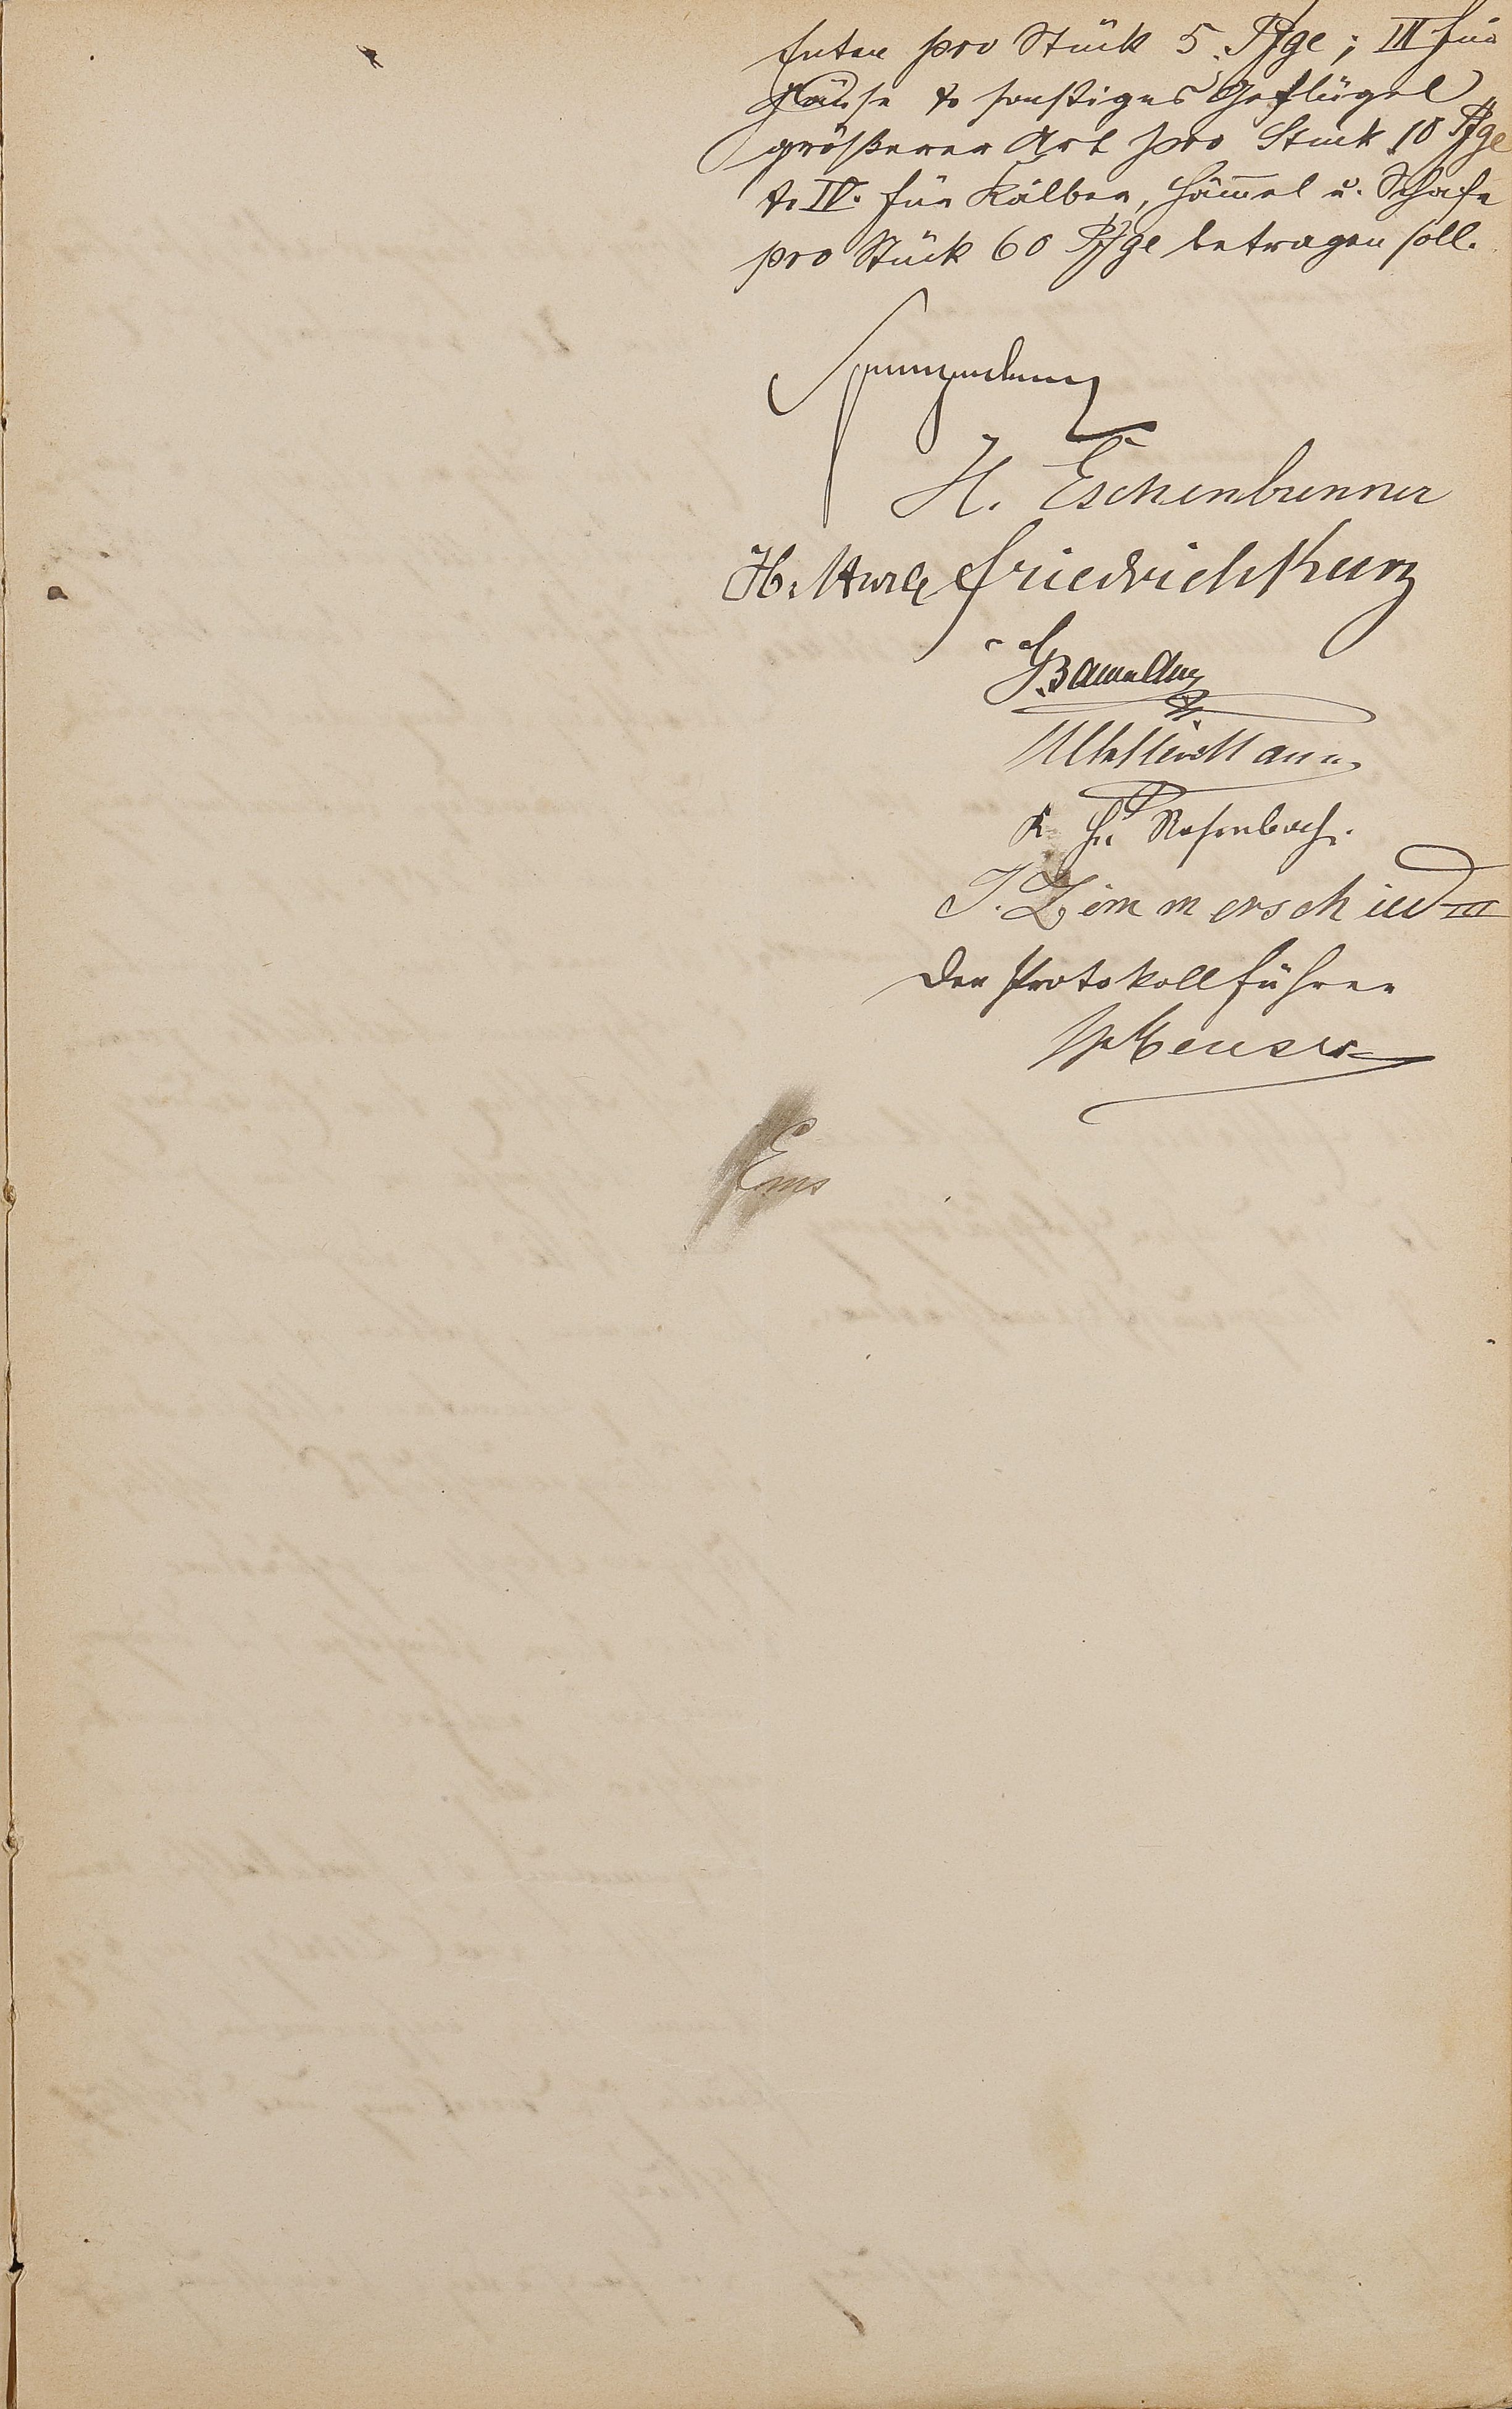 Enten pro Stück 5 Pfge; III für
Gänse & sonstiges Geflügel
größerer Art pro Stück 10 Pfge
& IV. für Kälber, Hämel u. Schafe
pro Stück 60 Pfge betragen soll.
H. Eschenbrenner
Friedrich Kurz
Rosenbach.
J. Zimmerschied III
Der Protokollführer
Meuser
Ems